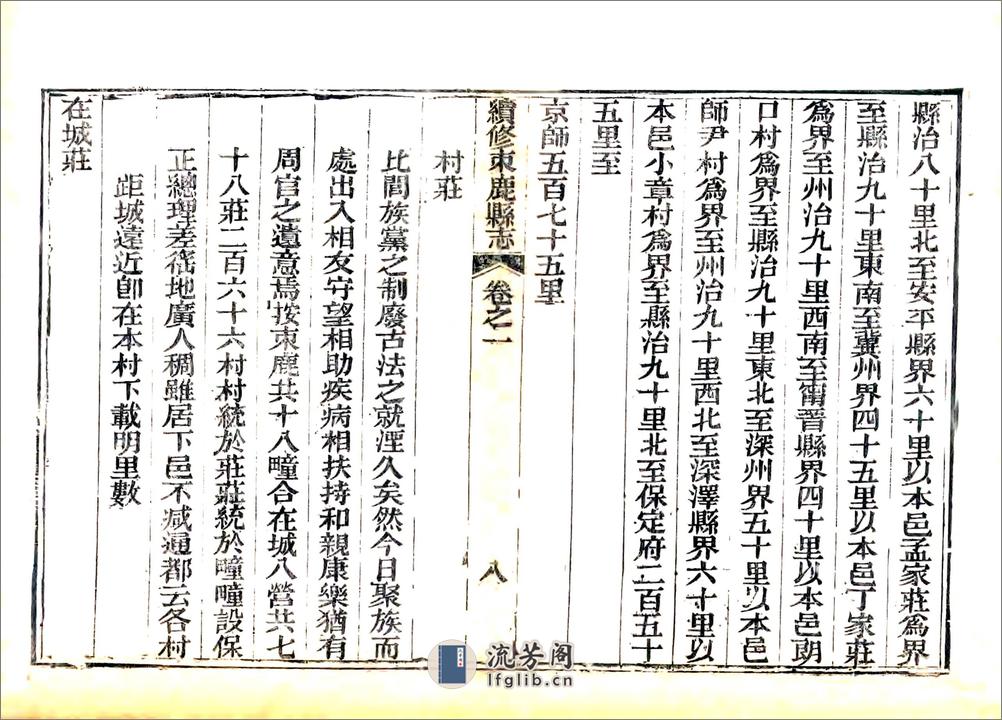 縣治八十里北至安平縣界六十里以本邑孟家莊爲界
至縣治九十里東南至冀州界四十五里以本邑丁家莊
爲界至州治九十里西南至甯晋縣界四十里以本邑朗
口村爲界至縣治九十里東北至深州界五十里以本邑
師尹村爲界至州治九十里西北至深澤縣界六十里以
本邑小章村爲界至縣治九十里北至保定府二百五十
五里至
京師五百七十五里
續修束鹿縣志 卷之一 八
村莊
比閭族黨之制廢古法之就湮久矣然今日聚族而
處出入相友守望相助疾病相扶持和親康樂猶有
周官之遺意焉按束鹿共十八疃合在城八營共七
十八莊二百六十六村村統於莊莊統於疃疃設保
正總理差徭地廣人稠雖居下邑不减通都云各村
距城遠近卽在本村下載明里數
在城莊
流芳阁
lfglib.cn